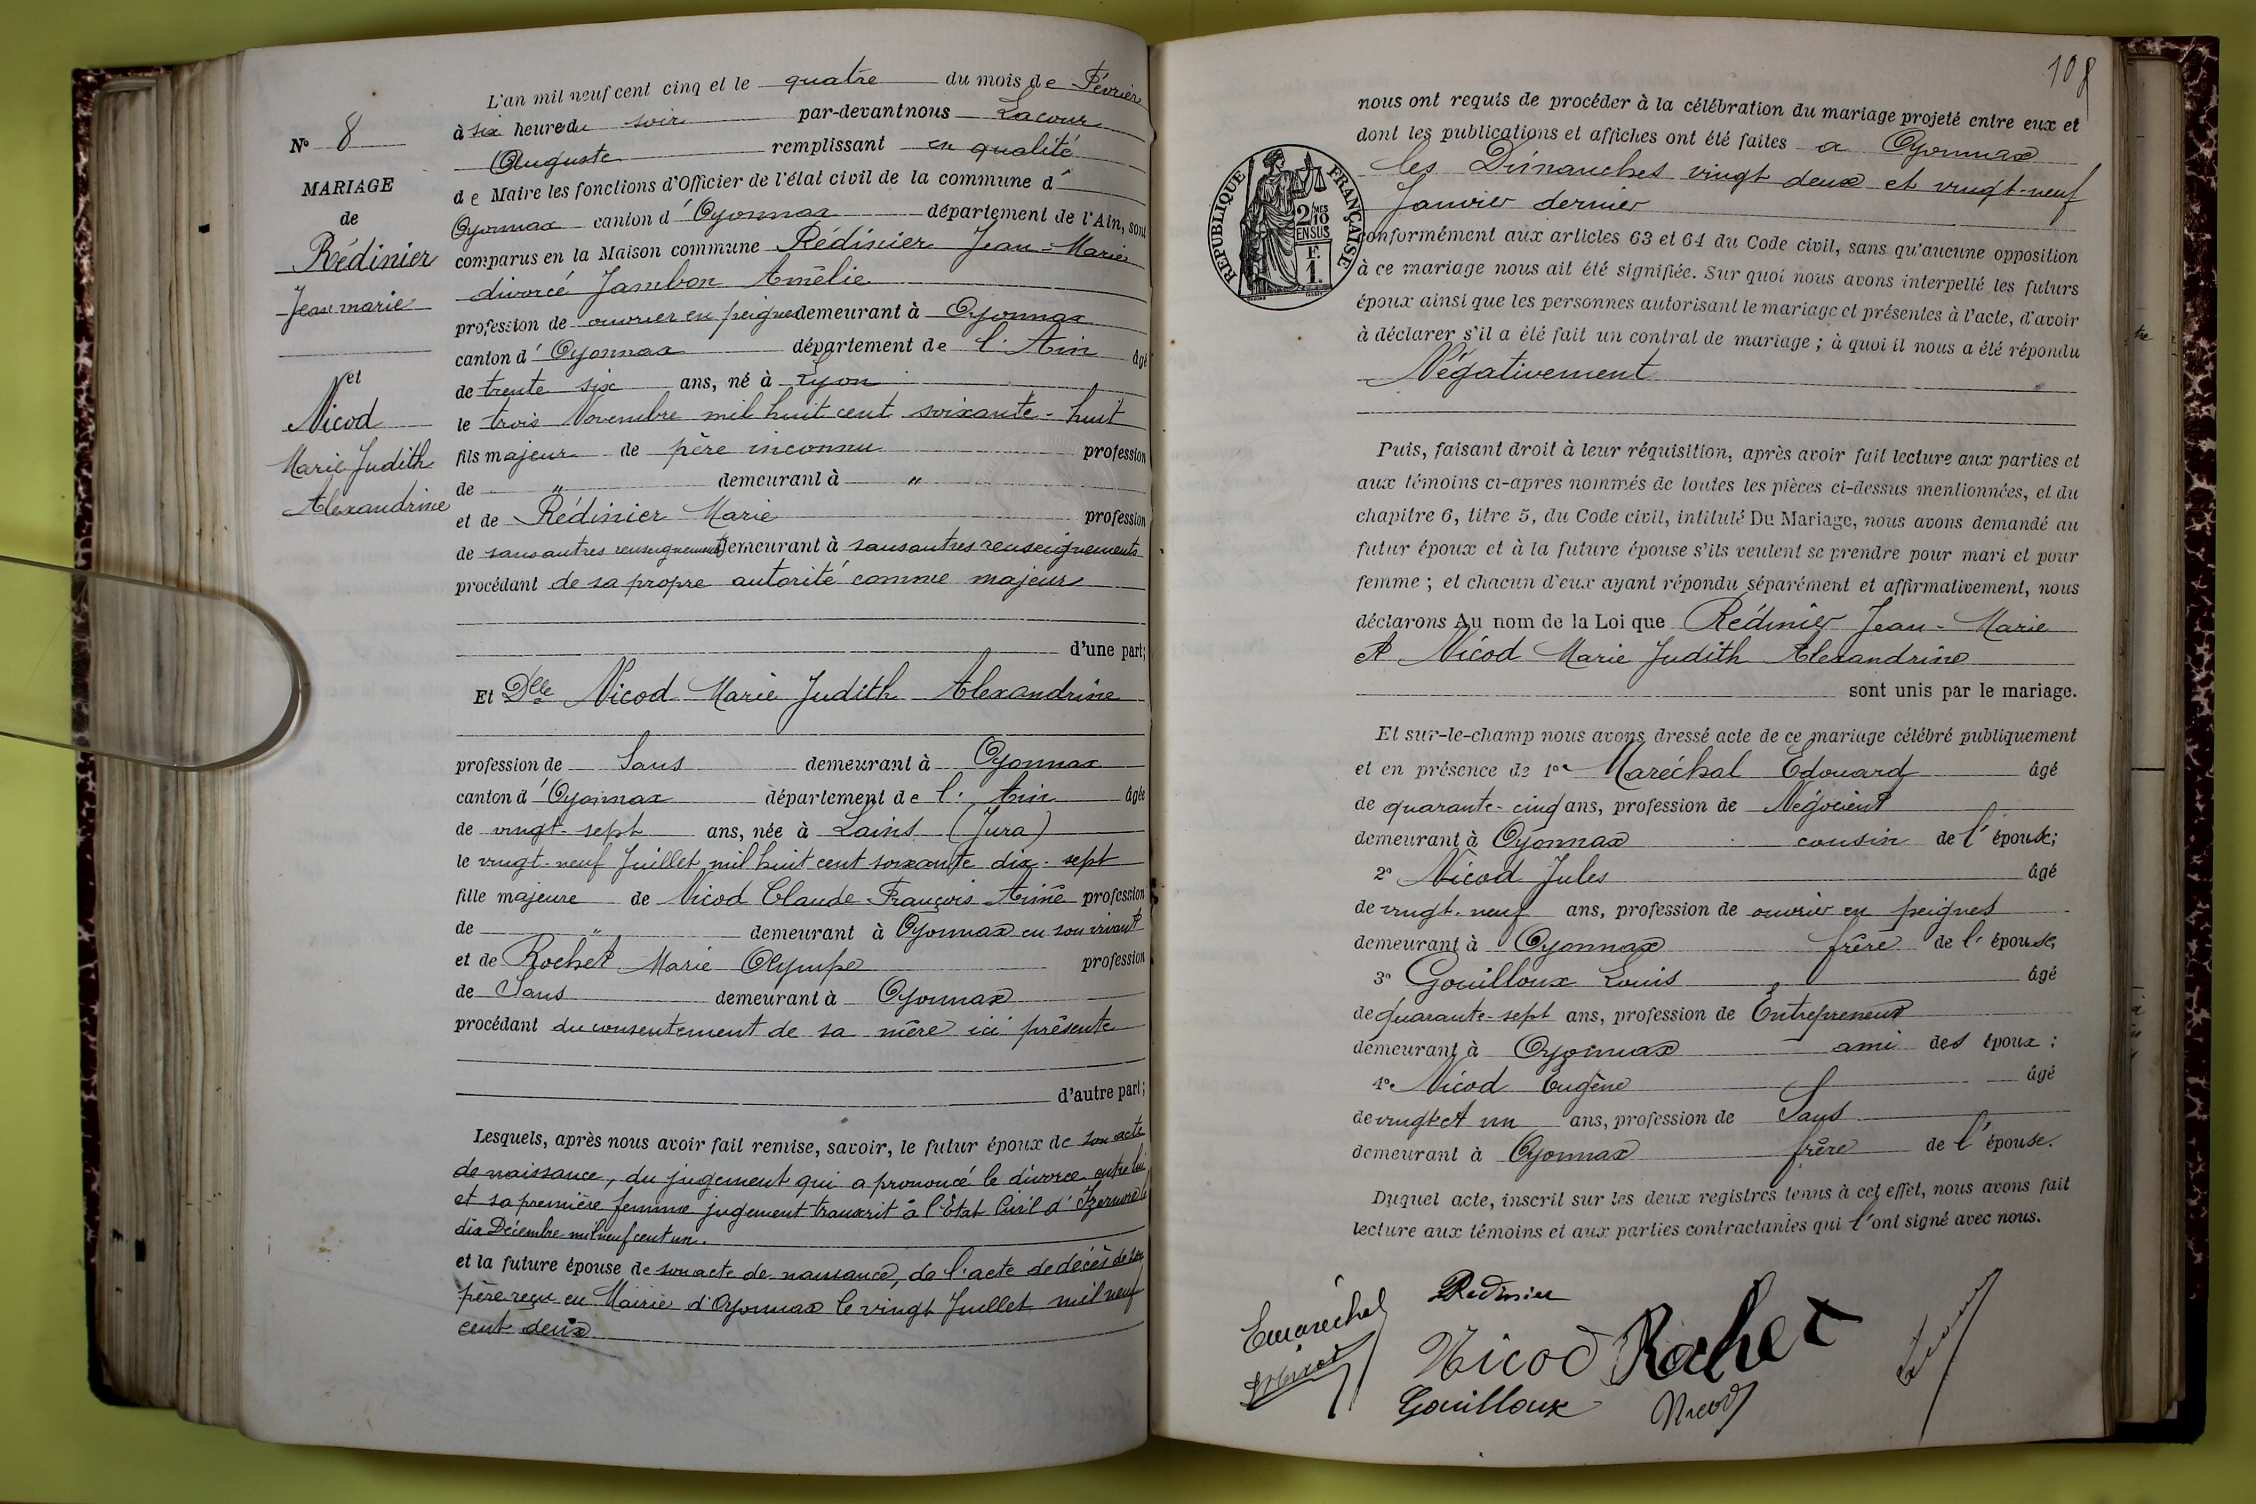 L'an mil neuf cent cinq et le quatre du mois de Février
à six heure du soir par-devant nous Lacour
Auguste remplissant en qualité
de Maire les fonctions d'Officier de l'état civil de la commune d'
Oyonnax canton d'Oyonnax département de l'Ain, sont
comparus en la Maison commune Rédinier Jean-Marie
divorcé Jambon Amélie
profession de ouvrier en peignes demeurant à Oyonnax
canton d'Oyonnax département de l'Ain âgé
de trente six ans, né à Lyon
le trois Novembre mil huit cent soixante-huit
fils majeur de père inconnu profession
de " demeurant à "
et de Rédinier Marie profession
de sans autres renseignements demeurant à sans autres renseignements
procédant de sa propre autorité comme majeur
d'une part;
Et Dlle Nicod Marie Judith Alexandrine
profession de Sans demeurant à Oyonnax
canton d'Oyonnax département de l'Ain âgée
de vingt-sept ans, née à Lains (Jura)
le vingt-neuf Juillet mil huit cent soixante dix-sept
fille majeure de Nicod Claude-François Aimé profession
de " demeurant à Oyonnax en son vivant
et de Rochet Marie Olympe profession
de Sans demeurant à Oyonnax
procédant du consentement de sa mère ici présente
d'autre part;
Lesquels, après nous avoir fait remise, savoir, le futur époux de son acte
de naissance, du jugement qui a prononcé le divorce entre lui
et sa première femme jugement transcrit à l'Etat Civil d'Izernore le
dix Décembre mil neuf cent un.
et la future épouse de son acte de naissance, de l'acte de décès de son
père reçu en Mairie d'Oyonnax le vingt Juillet mil neuf
cent deux
N° 8
MARIAGE
de
Rédinier
Jean marie
et
Nicod
Marie Judith
Alexandrine
108
nous ont requis de procéder à la célébration du mariage projeté entre eux et
dont les publications et affiches ont été faites a Oyonnax
les Dimanches vingt deux et vingt-neuf
Janvier dernier
conformément aux articles 63 et 64 du Code civil, sans qu'aucune opposition
à ce mariage nous ait été signifiée. Sur quoi nous avons interpellé les futurs
époux ainsi que les personnes autorisant le mariage et présentes à l'acte, d'avoir
à déclarer s'il a été fait un contrat de mariage ; à quoi il nous a été répondu
Négativement
RÉPUBLIQUE FRANÇAISE
2/10 MES
EN SUS
F.
1.
Puis, faisant droit à leur réquisition, après avoir fait lecture aux parties et
aux témoins ci-après nommés de toutes les pièces ci-dessus mentionnées, et du
chapitre 6, titre 5, du Code civil, intitulé Du Mariage, nous avons demandé au
futur époux et à la future épouse s'ils veulent se prendre pour mari et pour
femme ; et chacun d'eux ayant répondu séparément et affirmativement, nous
déclarons Au nom de la Loi que Rédinier Jean-Marie
et Nicod Marie Judith Alexandrine
sont unis par le mariage.
Et sur-le-champ nous avons dressé acte de ce mariage célébré publiquement
et en présence de 1° Maréchal Edouard âgé
de quarante-cinq ans, profession de Négociant
demeurant à Oyonnax cousin de l'épouse;
2° Nicod Jules âgé
de vingt-neuf ans, profession de ouvrier en peignes
demeurant à Oyonnax frère de l'épouse;
3° Gouilloux Louis âgé
de quarante-sept ans, profession de Entrepreneur
demeurant à Oyonnax ami des époux :
4° Nicod Eugène âgé
de vingt et un ans, profession de Sans
demeurant à Oyonnax frère de l'épouse.
Duquel acte, inscrit sur les deux registres tenus à cet effet, nous avons fait
lecture aux témoins et aux parties contractantes qui l'ont signé avec nous.
Emaréchal
Redinier
Nicod Rochet
Gouilloux
Nicod